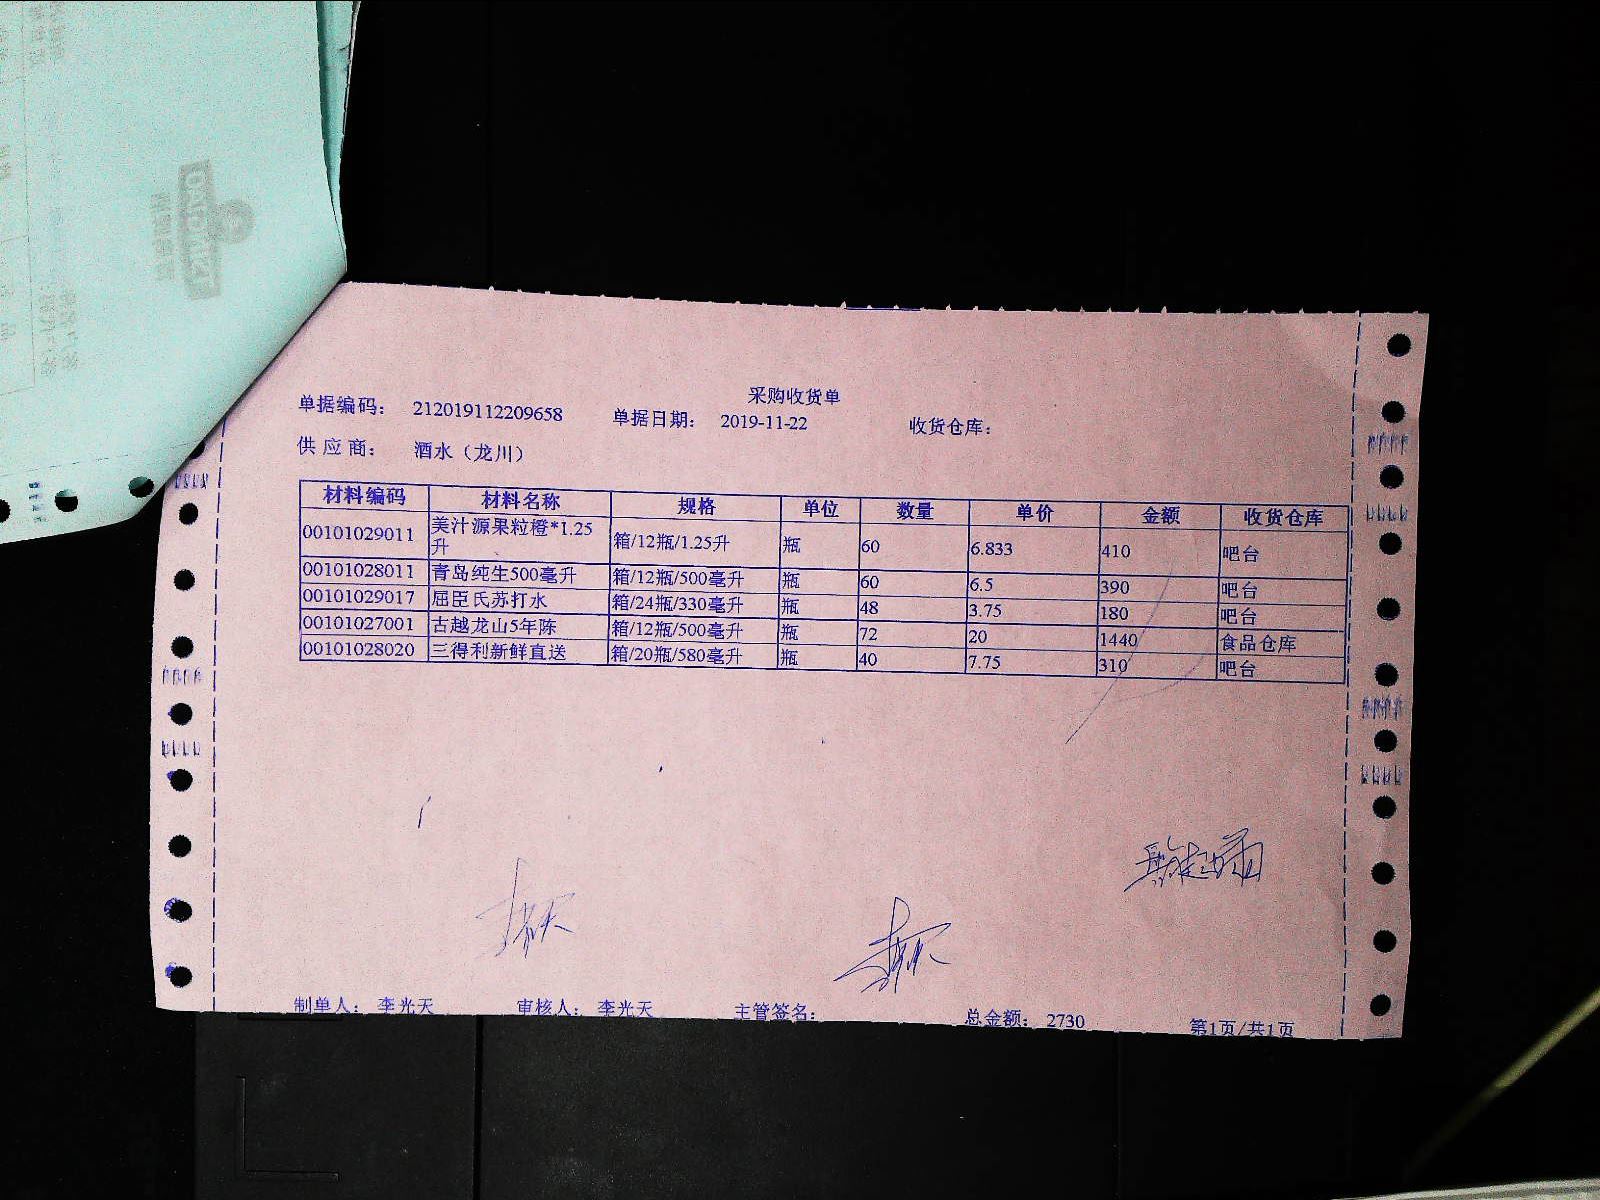 采购收货单
单据编码: 212019112209658 单据日期: 2019-11-22 收货仓库:
供应商: 酒水（龙川）
材料编码 材料名称 规格 单位 数量 单价 金额 收货仓库
00101029011 美汁源果粒橙*1.25升 箱/12瓶/1.25升 瓶 60 6.833 410 吧台
00101028011 青岛纯生500毫升 箱/12瓶/500毫升 瓶 60 6.5 390 吧台
00101029017 屈臣氏苏打水 箱/24瓶/330毫升 瓶 48 3.75 180 吧台
00101027001 古越龙山5年陈 箱/12瓶/500毫升 瓶 72 20 1440 食品仓库
00101028020 三得利新鲜直送 箱/20瓶/580毫升 瓶 40 7.75 310 吧台
制单人: 李光天 审核人: 李光天 主管签名: 总金额: 2730 第1页/共1页